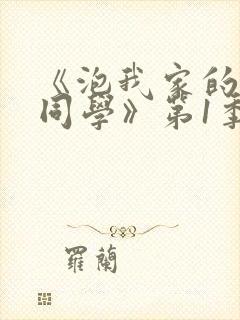 《泡我家的
同學》第1季
羅蘭